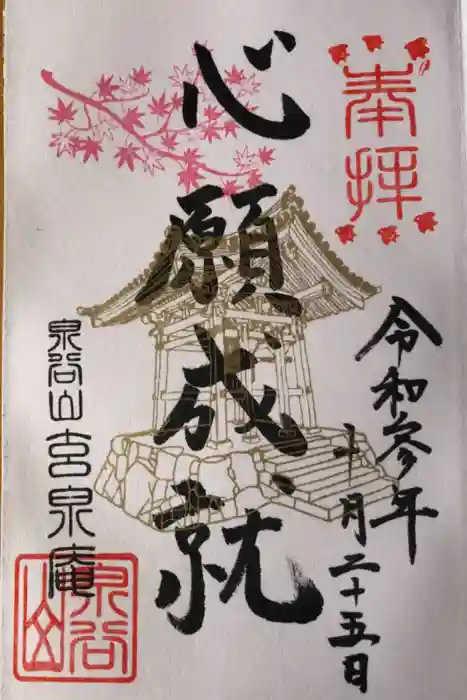 奉拝
令和参年
十月二十五日
心願成就
泉谷山玄泉庵
泉谷山